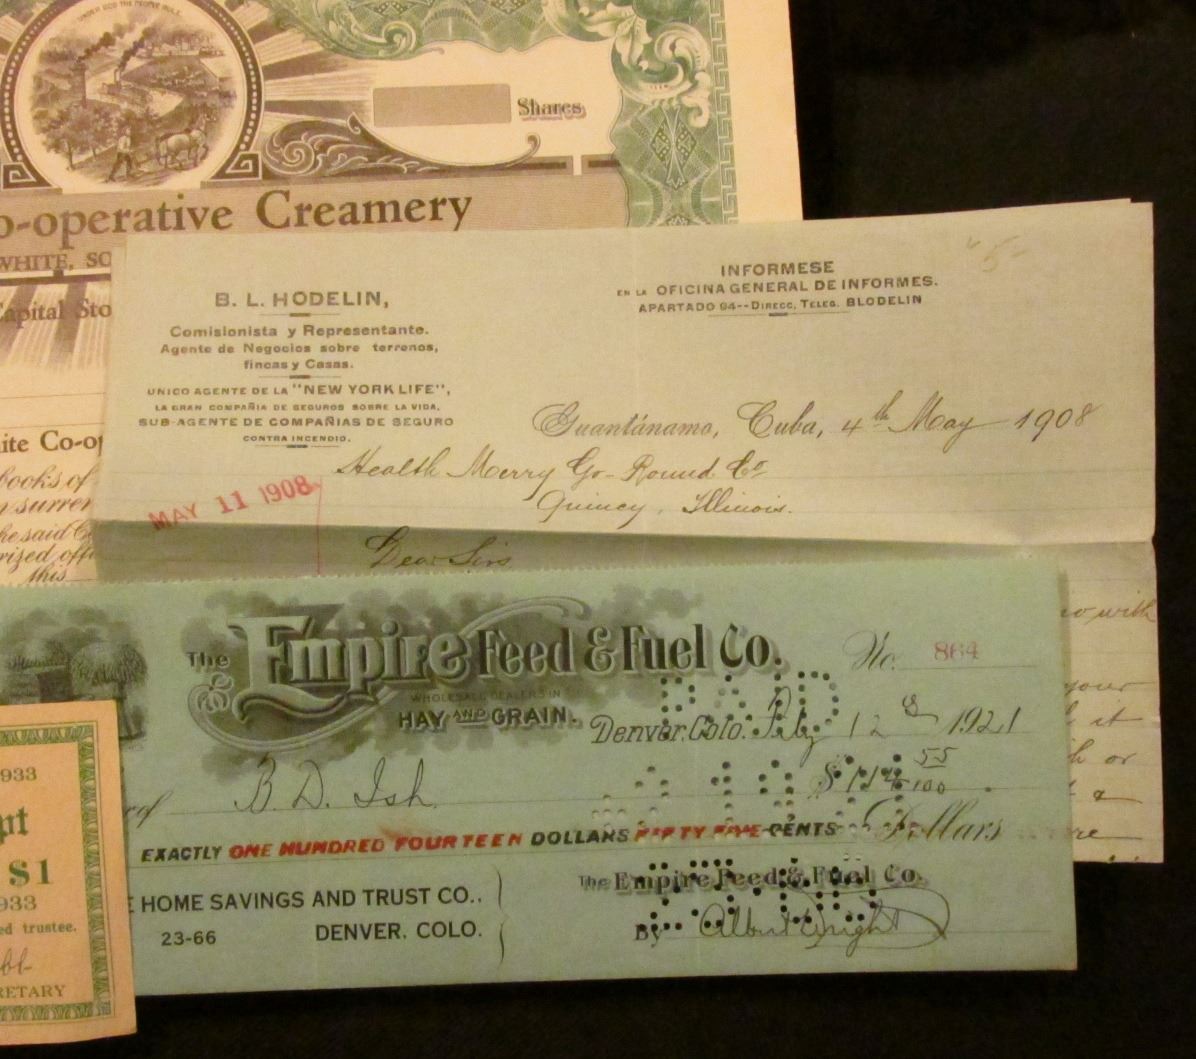 UNDER GOD THE PEOPLE RULE
Shares
o-operative Creamery
WHITE, SO
Capital Sto
ite Co-op
books of
n surren
he said C
rized offi
this
B. L. HODELIN,
Comisionista y Representante.
Agente de Negocios sobre terrenos,
fincas y Casas.
UNICO AGENTE DE LA "NEW YORK LIFE",
LA GRAN COMPAÑIA DE SEGUROS SOBRE LA VIDA,
SUB-AGENTE DE COMPAÑIAS DE SEGURO
CONTRA INCENDIO.
INFORMESE
EN LA OFICINA GENERAL DE INFORMES.
APARTADO 94--Direcc, Teleg. BLODELIN
"5-
Guantánamo, Cuba, 4th May 1908
Health Merry Go-Round Co
Quincy, Illinois.
MAY 11 1908
Dear Sirs
with
your
it
or
a
The Empire Feed & Fuel Co.
WHOLESALE DEALERS IN
HAY AND GRAIN.
No. 864
PAID
Denver, Colo. Feby 12 1921
of B. D. Ish
$ 114 55/100
EXACTLY ONE HUNDRED FOURTEEN DOLLARS FIFTY FIVE CENTS Dollars
E HOME SAVINGS AND TRUST CO.,
23-66 DENVER, COLO.
The Empire Feed & Fuel Co.
By Albert Wright
933
pt
$1
933
ed trustee.
RETARY